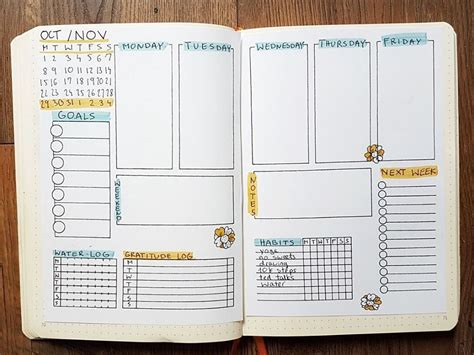 OCT/NOV
M T W T F S S
1 2 3 4 5 6 7
8 9 10 11 12 13 14
15 16 17 18 19 20 21
22 23 24 25 26 27 28
29 30 31 1 2 3 4
GOALS
MONDAY
TUESDAY
WEEKEND
WATER LOG
M
T
W
T
F
S
S
GRATITUDE LOG
M
T
W
T
F
S
S
WEDNESDAY
THURSDAY
FRIDAY
NOTES
NEXT WEEK
HABITS M T W T F S S
yoga
no sweets
drawing
10k steps
ted talks
water